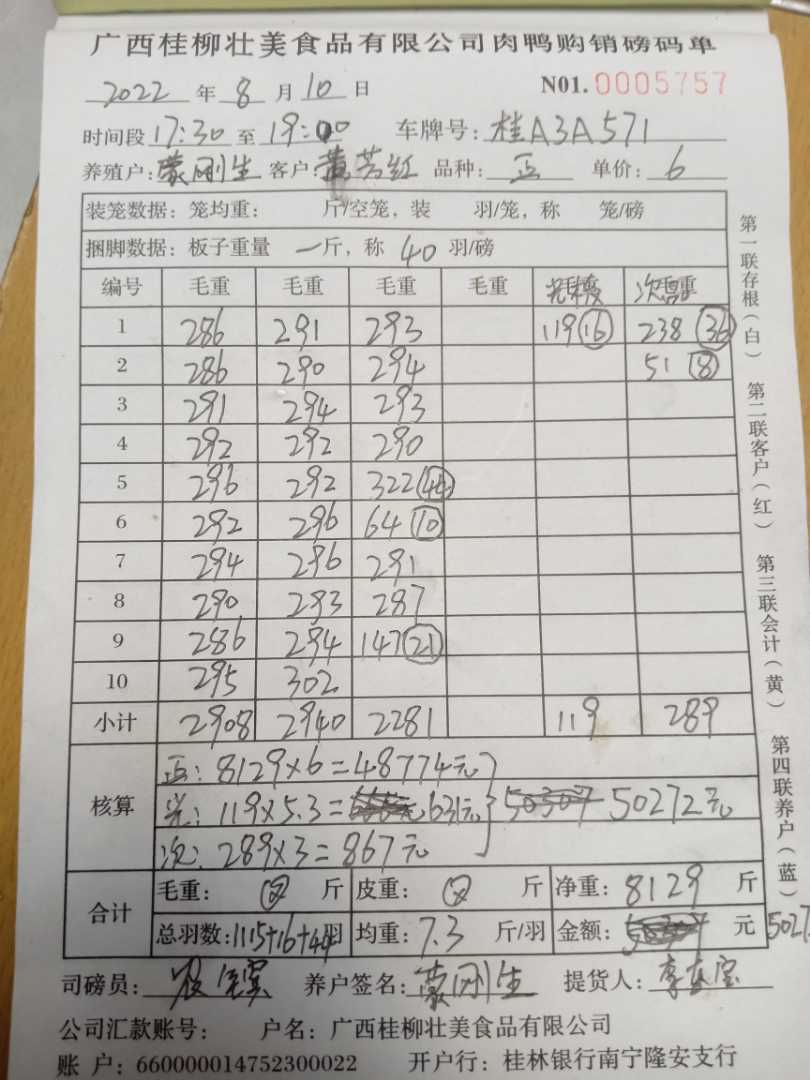 广西桂柳壮美食品有限公司肉鸭购销磅码单
2022 年 8 月 10 日 N01. 0005757
时间段 17:30 至 19:00 车牌号: 桂A3A571
养殖户: 蒙刚生 客户: 黄芳红 品种: 正 单价: 6
装笼数据: 笼均重: 斤/空笼, 装 羽/笼, 称 笼/磅
捆脚数据: 板子重量 一斤, 称 40 羽/磅
编号 毛重 毛重 毛重 毛重
1 286 291 293 119 16 238 36
2 286 290 294 51 8
3 291 294 293
4 292 292 290
5 296 292 322 44
6 292 296 64 10
7 294 296 291
8 290 293 287
9 286 294 147 21
10 295 302
小计 2908 2940 2281 119 289
核算
正: 8129×6=48774元
光: 119×5.3= 631元 50272元
次: 289×3=867元
合计
毛重: 斤 皮重: 斤 净重: 8129 斤
总羽数: 1115+16+44 羽 均重: 7.3 斤/羽 金额: 元 5027
司磅员: 养户签名: 蒙刚生 提货人:
公司汇款账号: 户名: 广西桂柳壮美食品有限公司
账 户: 660000014752300022 开户行: 桂林银行南宁隆安支行
第一联存根(白) 第二联客户(红) 第三联会计(黄) 第四联养户(蓝)